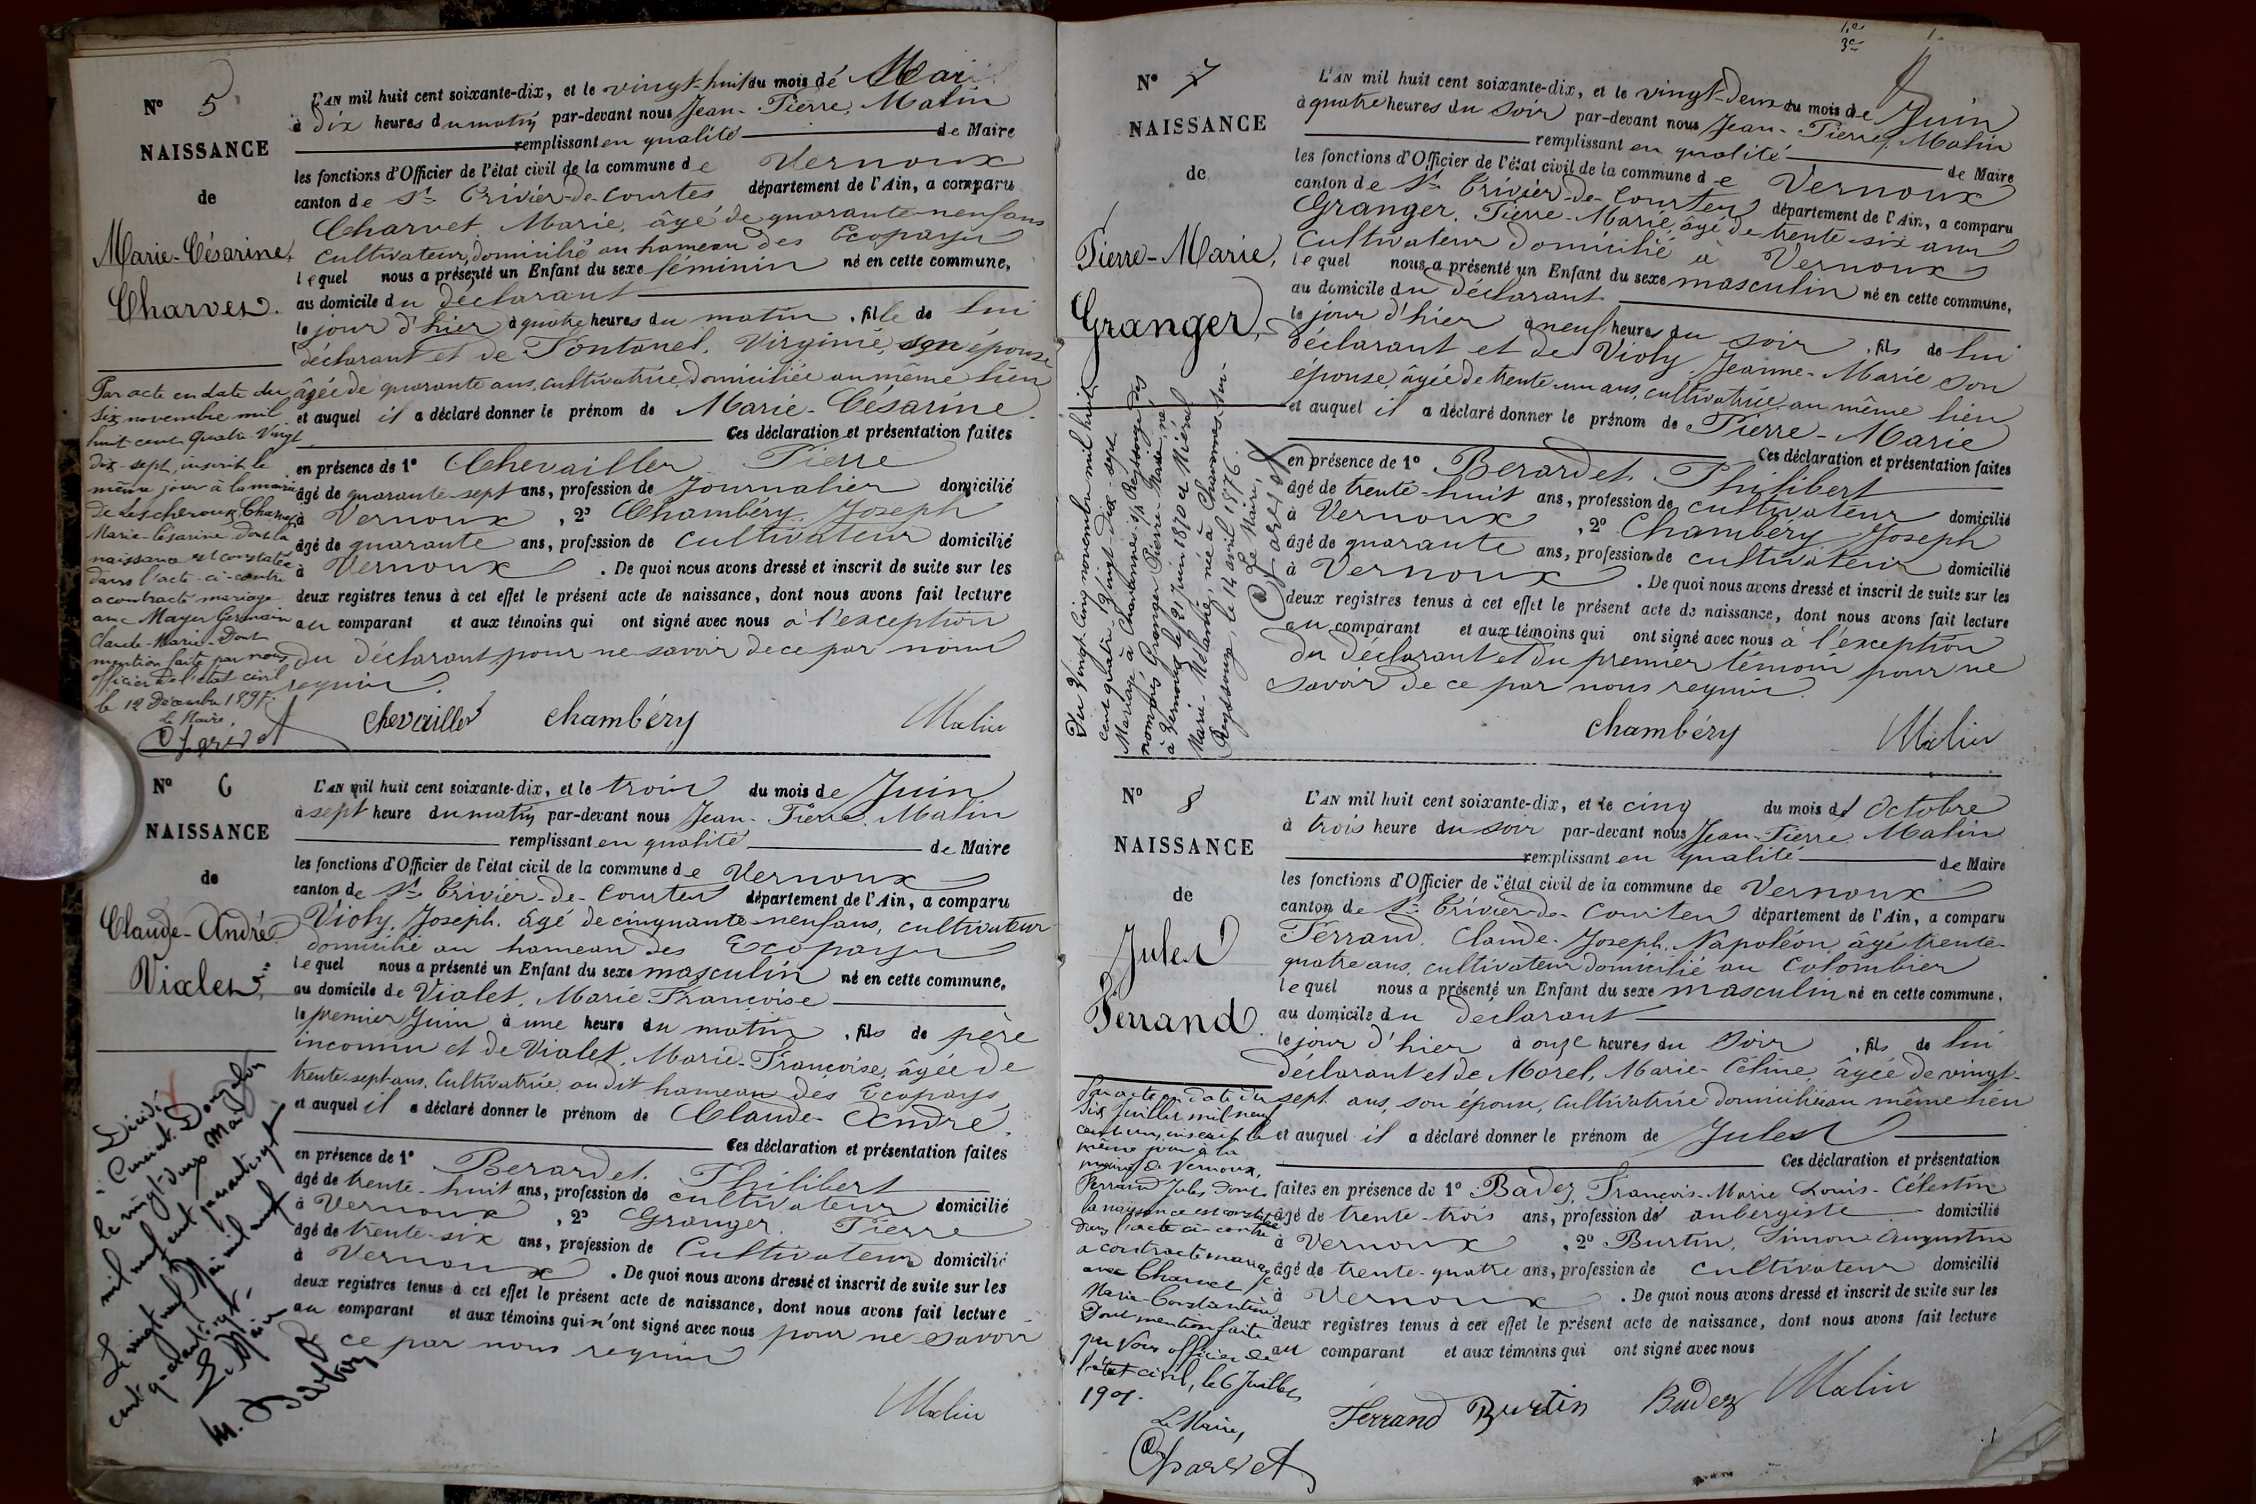 N° 5
NAISSANCE
de
Marie-Césarine,
Charvet.
L'AN mil huit cent soixante-dix, et le vingt-huit du mois de Mai
à dix heures du matin par-devant nous Jean-Pierre Matin
remplissant en qualité de Maire
les fonctions d'Officier de l'état civil de la commune de Vernoux
canton de St Trivier-de-Courtes département de l'Ain, a comparu
Charvet Marie, âgé de quarante-neuf ans
cultivateur, domicilié au hameau des Ecopays
lequel nous a présenté un Enfant du sexe féminin né en cette commune,
au domicile du déclarant
le jour d'hier à quatre heures du matin, fille de lui
déclarant et de Fontanel, Virginie, son épouse
âgée de quarante ans, cultivatrice, domiciliée au même lieu
et auquel il a déclaré donner le prénom de Marie-Césarine.
Ces déclaration et présentation faites
en présence de 1° Chevailler Pierre
âgé de quarante-sept ans, profession de Journalier domicilié
à Vernoux, 2° Chambéry Joseph
âgé de quarante ans, profession de cultivateur domicilié
à Vernoux. De quoi nous avons dressé et inscrit de suite sur les
deux registres tenus à cet effet le présent acte de naissance, dont nous avons fait lecture
au comparant et aux témoins qui ont signé avec nous à l'exception
du déclarant pour ne savoir de ce par nous
requis.
Chevailler Chambéry Malin
Par acte en date du
six novembre mil
huit cent quatre-vingt
dix-sept, inscrit le
même jour à la mairie
de Lescheroux, Charvet
Marie-Césarine dont la
naissance est constatée
dans l'acte ci-contre
a contracté mariage
avec Mayer Germain
Claude-Marie. Dont
mention faite par nous
officier de l'état civil
le 12 Décembre 1897.
Le Maire,
Charvet
N° 6
NAISSANCE
de
Claude-André
Vialet.
L'AN mil huit cent soixante-dix, et le trois du mois de Juin
à sept heure du matin par-devant nous Jean-Pierre Matin
remplissant en qualité de Maire
les fonctions d'Officier de l'état civil de la commune de Vernoux
canton de St Trivier-de-Courtes département de l'Ain, a comparu
Violy, Joseph, âgé de cinquante-neuf ans, cultivateur
domicilié au hameau des Ecopays
lequel nous a présenté un Enfant du sexe masculin né en cette commune,
au domicile de Vialet, Marie Françoise
le premier Juin à une heure du matin, fils de père
inconnu et de Vialet, Marie-Françoise, âgée de
trente-sept ans, cultivatrice, au dit hameau des Ecopays
et auquel il a déclaré donner le prénom de Claude-André.
Ces déclaration et présentation faites
en présence de 1° Berardet Philibert
âgé de trente-huit ans, profession de cultivateur domicilié
à Vernoux, 2° Granger Pierre
âgé de trente-six ans, profession de Cultivateur domicilié
à Vernoux. De quoi nous avons dressé et inscrit de suite sur les
deux registres tenus à cet effet le présent acte de naissance, dont nous avons fait lecture
au comparant et aux témoins qui n'ont signé avec nous pour ne savoir
ce par nous requis
Malin
Décédé
à Curciat-Dongalon
le vingt-deux Mai
mil neuf cent quarante sept
Le vingt neuf Mai mil neuf
cent quarante sept
Le Maire
N° 7
NAISSANCE
de
Pierre-Marie,
Granger,
L'AN mil huit cent soixante-dix, et le vingt-deux du mois de Juin
à quatre heures du soir par-devant nous Jean-Pierre, Matin
remplissant en qualité de Maire
les fonctions d'Officier de l'état civil de la commune de Vernoux
canton de St Trivier-de-Courtes département de l'Ain, a comparu
Granger, Pierre-Marie, âgé de trente-six ans
cultivateur domicilié à Vernoux
lequel nous a présenté un Enfant du sexe masculin né en cette commune,
au domicile du déclarant
le jour d'hier à neuf heures du soir, fils de lui
déclarant et de Violy Jeanne-Marie son
épouse, âgée de trente-un ans, cultivatrice au même lieu
et auquel il a déclaré donner le prénom de Pierre-Marie
Ces déclaration et présentation faites
en présence de 1° Berardet Philibert
âgé de trente-huit ans, profession de cultivateur domicilié
à Vernoux, 2° Chambéry Joseph
âgé de quarante ans, profession de cultivateur domicilié
à Vernoux. De quoi nous avons dressé et inscrit de suite sur les
deux registres tenus à cet effet le présent acte de naissance, dont nous avons fait lecture
au comparant et aux témoins qui ont signé avec nous à l'exception
du déclarant et du premier témoin pour ne
savoir de ce par nous requis.
Chambéry Malin
Du Vingt cinq novembre mil huit
cent quatre-vingt-dix-sept
Mariage à Chavannes s/s Reyssouze des
nommés Granger Pierre-Marie né
à Vernoux le 21 Juin 1870 et
Marie-Mélanie, née à Chavannes-sur-
Reyssouze, le 14 avril 1876.
Le Maire,
Charvet
N° 8
NAISSANCE
de
Jules
Ferrand.
L'AN mil huit cent soixante-dix, et le cinq du mois d'Octobre
à trois heure du soir par-devant nous Jean-Pierre Matin
remplissant en qualité de Maire
les fonctions d'Officier de l'état civil de la commune de Vernoux
canton de St Trivier-de-Courtes département de l'Ain, a comparu
Ferrand, Claude-Joseph, Napoléon, âgé trente-
quatre ans, cultivateur domicilié au Colombier
lequel nous a présenté un Enfant du sexe masculin né en cette commune,
au domicile du déclarant
le jour d'hier à onze heures du Soir, fils de lui
déclarant et de Morel, Marie-Céline, âgée de vingt-
sept ans, son épouse, cultivatrice domiciliée au même lieu
et auquel il a déclaré donner le prénom de Jules
Ces déclaration et présentation
faites en présence de 1° Badez, François-Marie Louis-Célestin
âgé de trente-trois ans, profession de aubergiste domicilié
à Vernoux, 2° Burtin, Simon Augustin
âgé de trente-quatre ans, profession de cultivateur domicilié
à Vernoux. De quoi nous avons dressé et inscrit de suite sur les
deux registres tenus à cet effet le présent acte de naissance, dont nous avons fait lecture
au comparant et aux témoins qui ont signé avec nous
Ferrand Burtin Badez Malin
Par acte en date du
six Juillet mil neuf
cent un, inscrit le
même jour à la
mairie de Vernoux,
Ferrand Jules dont
la naissance est constatée
dans l'acte ci-contre
a contracté mariage
avec Charvet
Marie-Constantine
Dont mention faite
par Nous officier de
l'état civil, le 6 Juillet
1901.
Le Maire,
Charvet